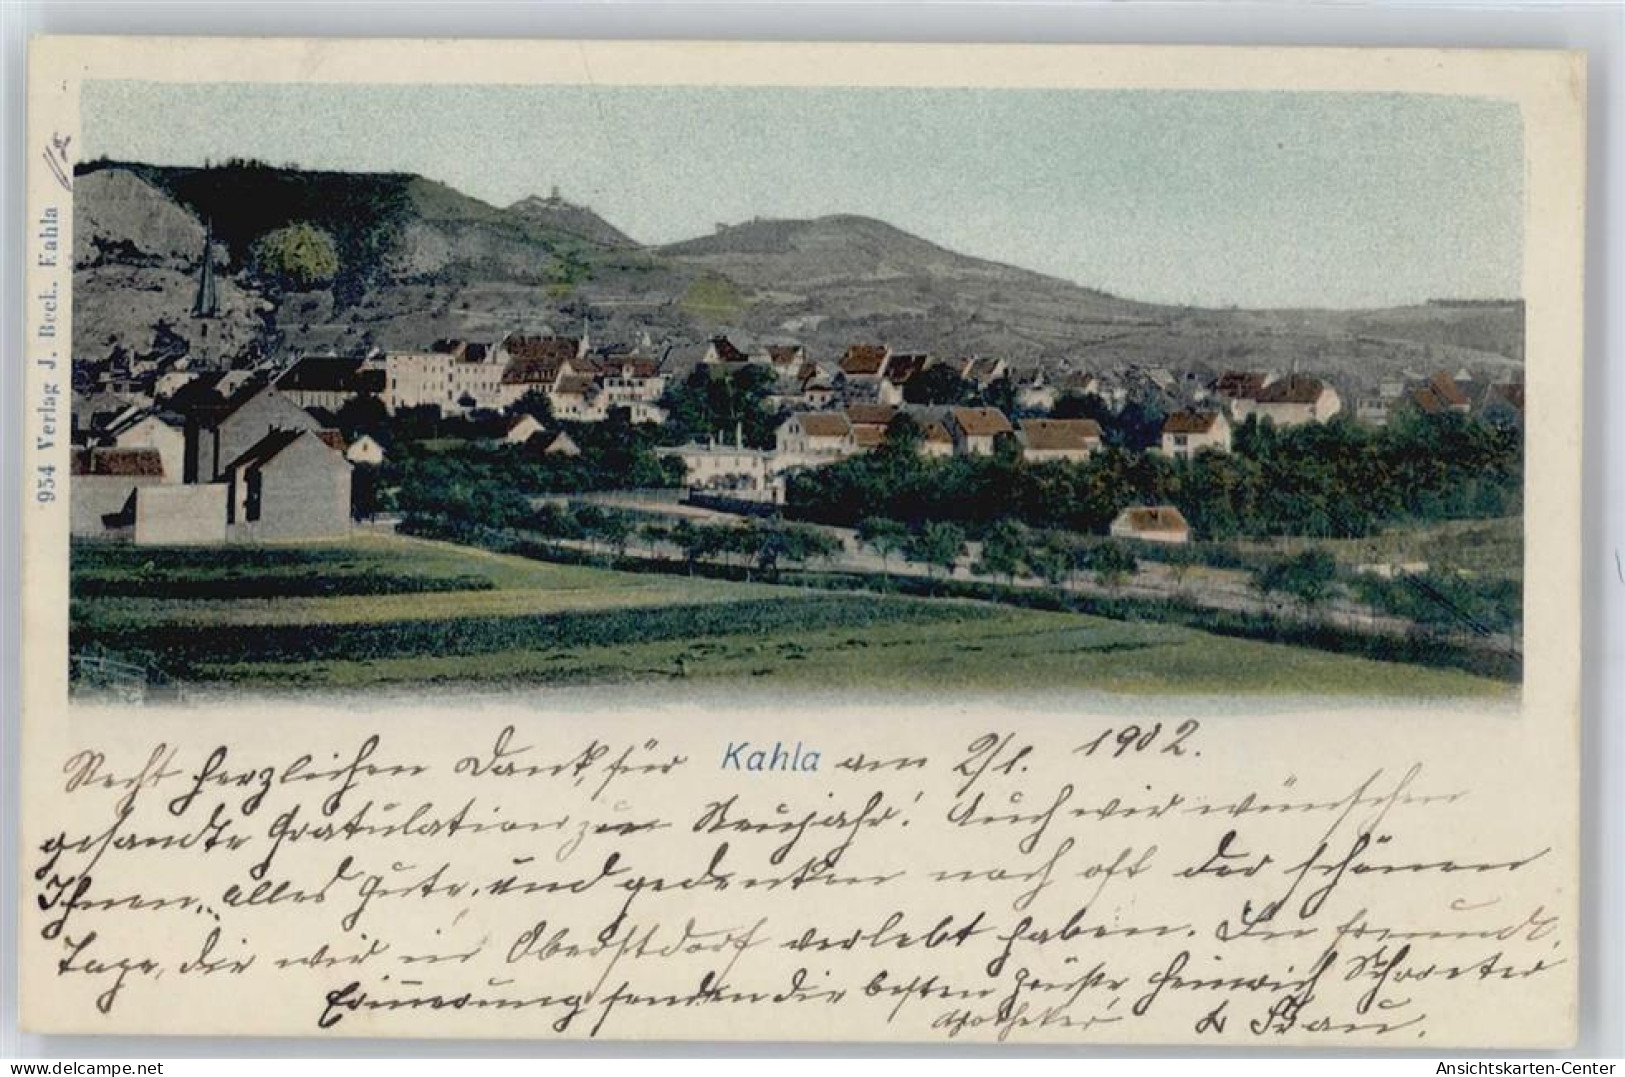 954 Verlag J. Beck. Kahla
Recht herzlichen Dank für Kahla am 2/1. 1902.
gesandte Gratulation zu Neujahr! Auch wir wünschen
Ihnen alles Gute und gedenken noch oft der schönen
Tage, die wir in Oberstdorf verlebt haben. In freundl.
Erinnerung senden die besten Grüße Heinrich Schroeter
Apotheker & Frau.
www.delcampe.net
Ansichtskarten-Center